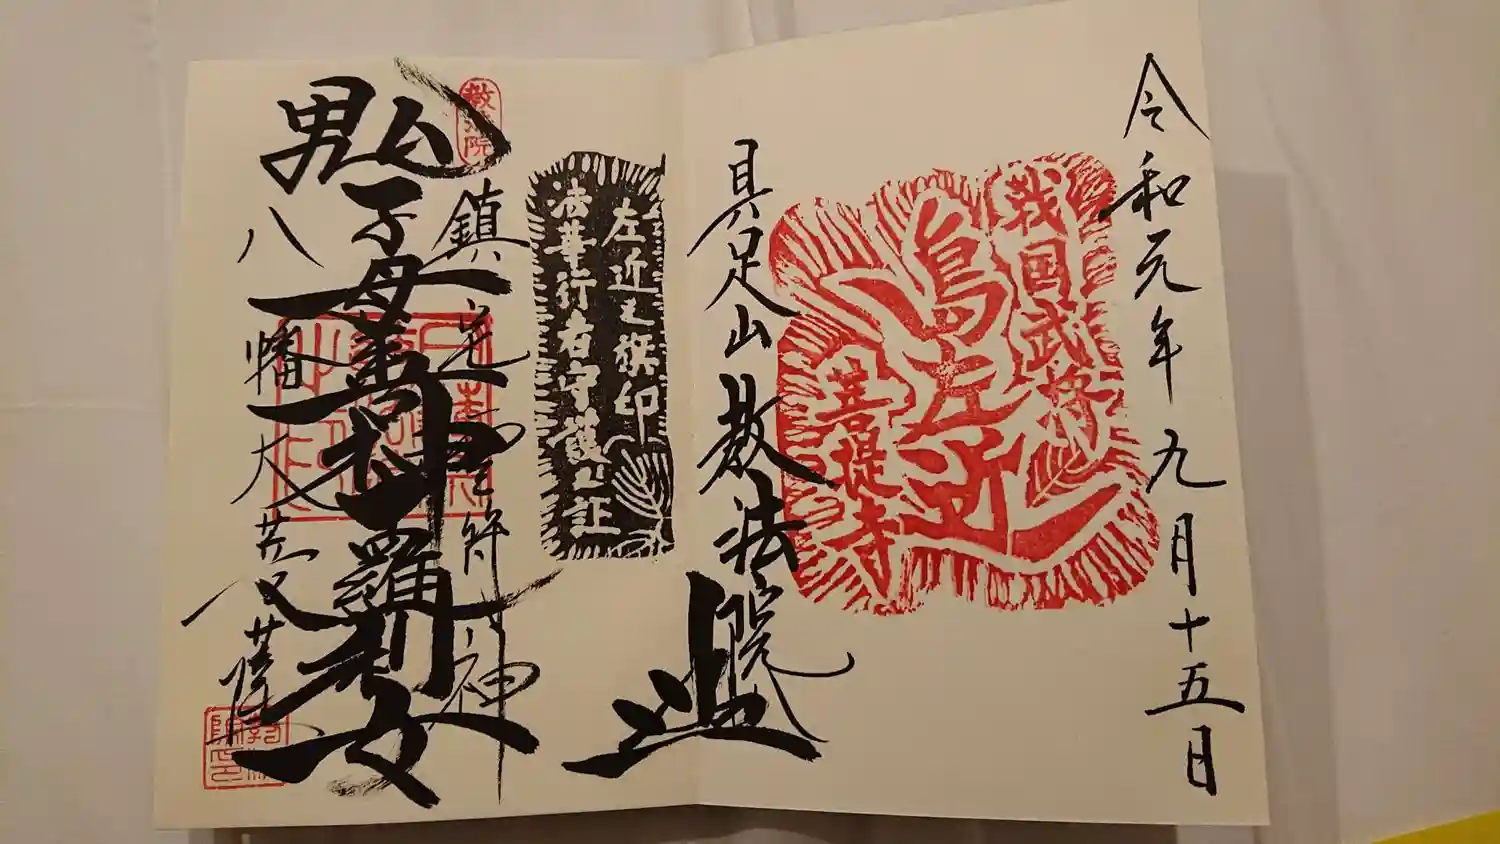 令和元年九月十五日
戦国武将
島左近
菩提寺
具足山教法院
左近之旗印
法華行者守護之証
教法院
鎮宅霊符神
鬼子母善神十羅刹女
八幡大菩薩